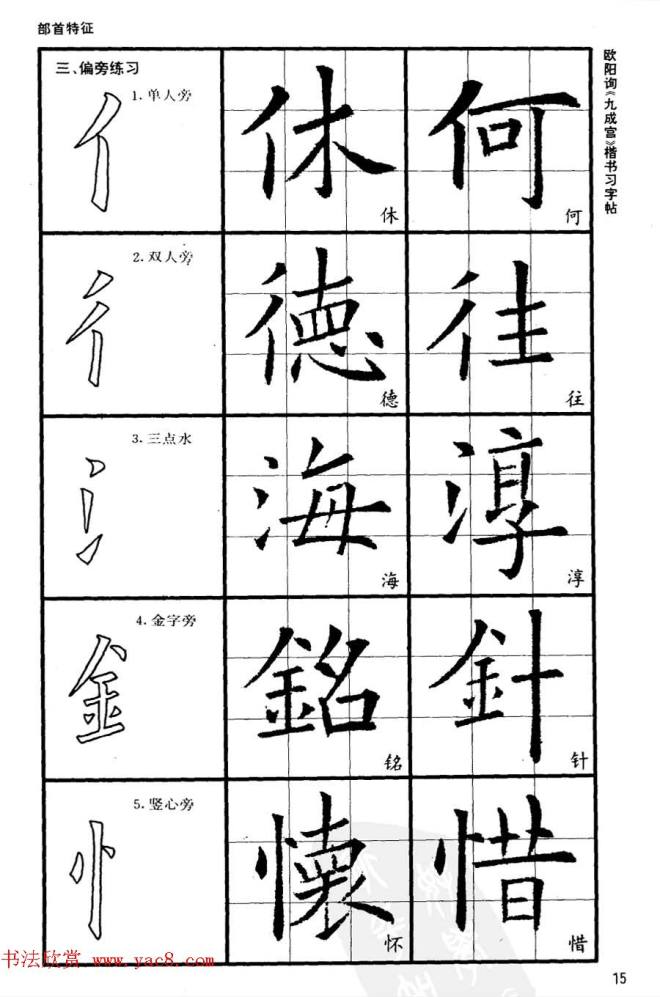 部首特征
欧阳询《九成宫》楷书习字帖
三、偏旁练习
1. 单人旁
亻
休
休
何
何
2. 双人旁
彳
德
德
往
往
3. 三点水
氵
海
海
淳
淳
4. 金字旁
釒
銘
铭
針
针
5. 竖心旁
忄
懷
怀
惜
惜
书法欣赏 www.yac8.com
15